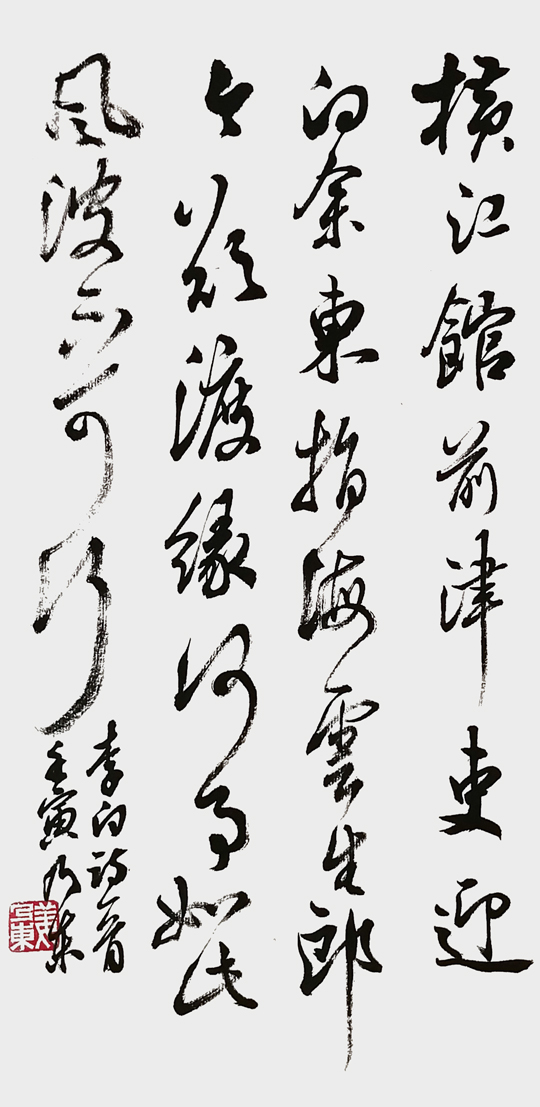 橫江館前津吏迎
向余東指海雲生郎
今欲渡緣何事如此
風波不可行
李白詩一首
壬寅